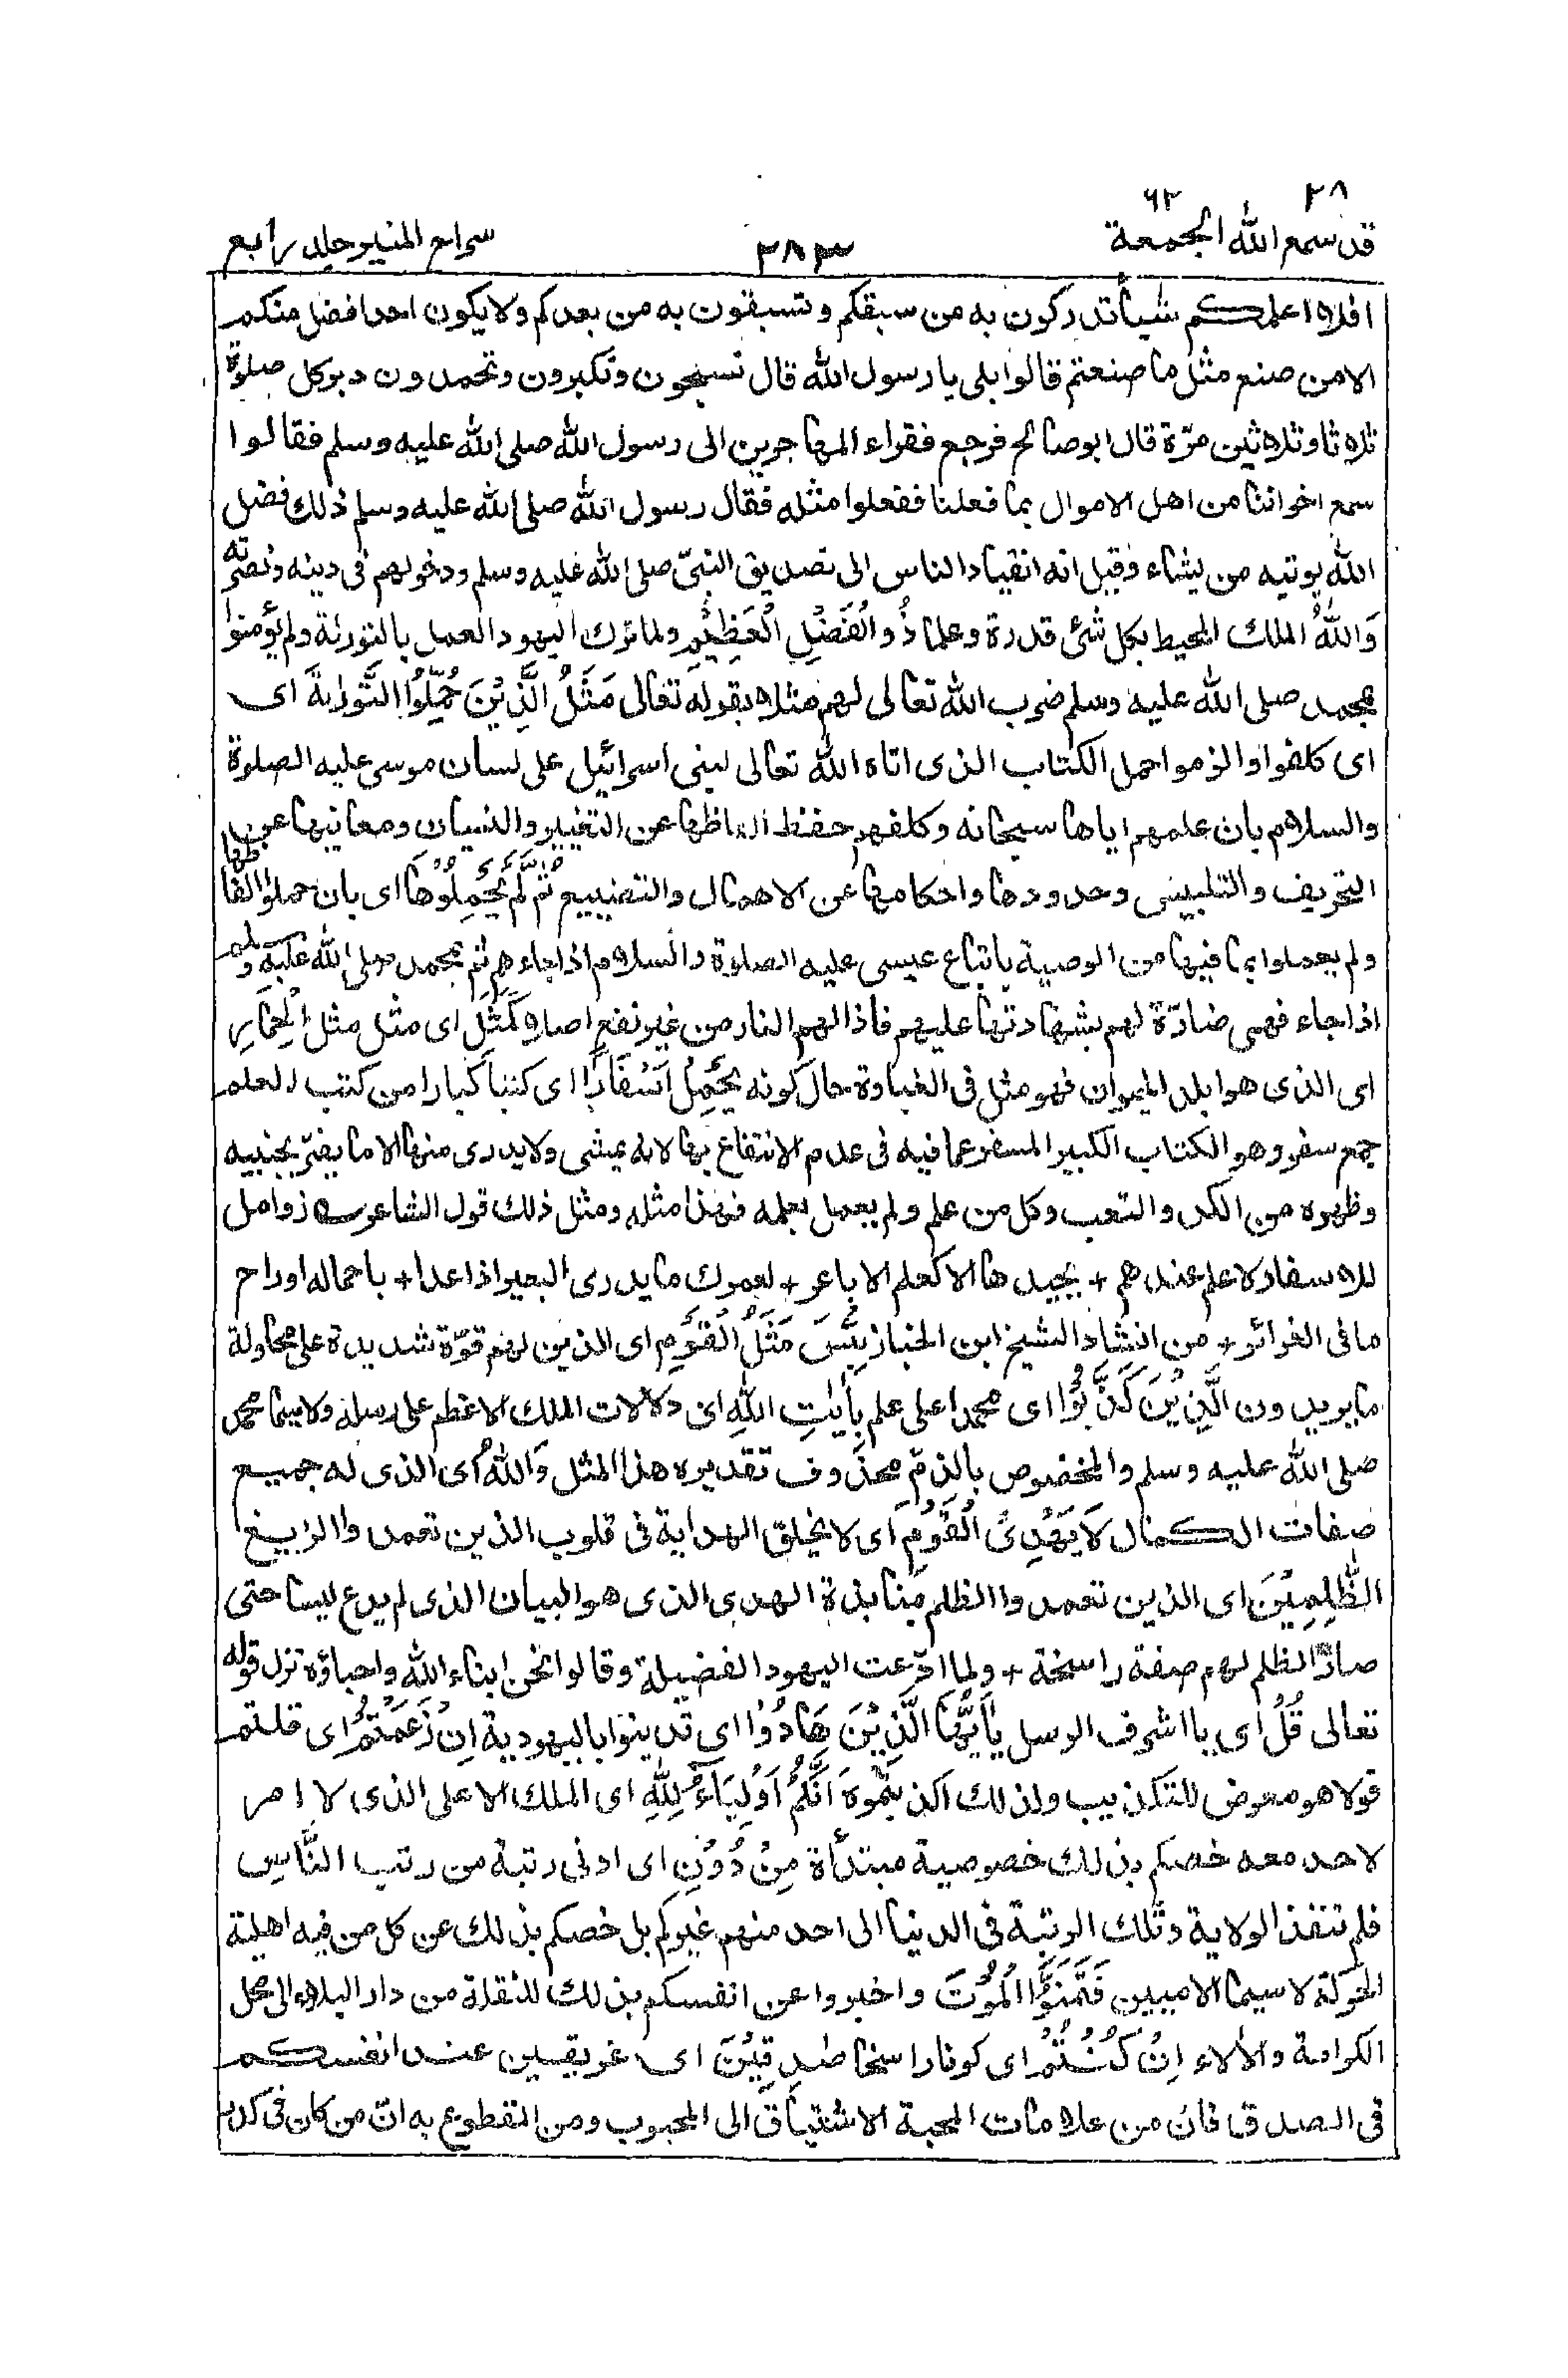 ٢٨ ٦٢
قد سمع الله الجمعة ٢٨٣ سراج المنير جلد رابع
افلا اعلمكم شيأ تدركون به من سبقكم وتسبقون به من بعدكم ولا يكون احد افضل منكم
الا من صنع مثل ما صنعتم قالوا بلى يا رسول الله قال تسبحون وتكبرون وتحمدون دبر كل صلوة
ثلاثا وثلاثين مرّة قال ابو صالح فرجع فقراء المهاجرين الى رسول الله صلى الله عليه وسلم فقالوا
سمع اخواننا من اهل الاموال بما فعلنا ففعلوا مثله فقال رسول الله صلى الله عليه وسلم ذلك فضل
الله يوتيه من يشاء وقيل انه انقياد الناس الى تصديق النبىّ صلى الله عليه وسلم ودخولهم فى دينه ونصرته
وَاللهُ الملك المحيط بكل شئ قدرة وعلما ذُو الْفَضْلِ الْعَظِيْمِ ولما ترك اليهود العمل بالتورىة ولم يؤمنوا
بمحمد صلى الله عليه وسلم ضرب الله تعالى لهم مثلا بقوله تعالى مَثَلُ الَّذِيْنَ حُمِّلُوا التَّوْرٰىةَ اى
اى كلفوا والزموا حمل الكتاب الذى اتاه الله تعالى لبنى اسرائيل على لسان موسى عليه الصلوة
والسلام بان علمهم اياها سبحانه وكلفهم حفظ الفاظها عن التغيير والنسيان ومعانيها عن
التحريف والتلبيس وحدودها واحكامها عن الاهمال والتضييع ثُمَّ لَمْ يَحْمِلُوْهَا اى بان حملوا الفاظها
ولم يعملوا بما فيها من الوصية باتباع عيسى عليه الصلوة والسلام اذا جاءهم ثم بمحمد صلى الله عليه وسلم
اذا جاء فهى ضارّة لهم بشهادتها عليهم فاذا لهم النار من غير نفع اصلا كَمَثَلِ اى مثل مثل الْحِمَارِ
اى الذى هو ابلد الحيوان فهو مثل فى الغباوة حال كونه يَحْمِلُ اَسْفَارًا اى كتبا كبارا من كتب العلم
جمع سفر وهو الكتاب الكبير المسفر عما فيه فى عدم الانتفاع بها لانه يمشى ولا يدرى منها الا ما يضرّ بجنبيه
وظهره من الكد والتعب وكل من علم ولم يعمل بعلمه فهذا مثله ومثل ذلك قول الشاعر زوامل
للاسفار لا علم عندهم + بجيدها الا كعلم الاباعر + لعمرك ما يدرى البعير اذا غدا + باحماله او راح
ما فى الغرائر + من انشاد الشيخ ابن الخباز بِئْسَ مَثَلُ الْقَوْمِ اى الذين لهم قوّة شديدة على محاولة
ما يريدون الَّذِيْنَ كَذَّبُوْا اى محمدا على علم بِاٰيٰتِ اللهِ اى دلالات الملك الاعظم على رسله ولا سيما محمد
صلى الله عليه وسلم والمخصوص بالذمّ محذوف تقديره هذا المثل وَاللهُ اى الذى له جميع
صفات الكمال لَا يَهْدِى الْقَوْمَ اى لا يخلق الهداية فى قلوب الذين تعمدوا الزيغ
الظّٰلِمِيْنَ اى الذين تعمدوا الظلم منابذة الهدى الذى هو البيان الذى لم يدع لبسا حتى
صار الظلم لهم صفة راسخة + ولما ادّعت اليهود الفضيلة وقالوا نحن ابناء الله واحباؤه نزل قوله
تعالى قُلْ اى يا اشرف الرسل يٰاَيُّهَا الَّذِيْنَ هَادُوْا اى تدينوا باليهودية اِنْ زَعَمْتُمْ اى قلتم
قولا هو معرض للتكذيب ولذلك اكذبتموه اَنَّكُمْ اَوْلِيَآءُ لِلّٰهِ اى الملك الاعلى الذى لا امر
لاحد معه خصكم بذلك خصوصية مبتدأة مِنْ دُوْنِ اى ادنى رتبة من رتب النَّاسِ
فلم تنفذ الولاية وتلك الرتبة فى الدنيا الى احد منهم غيركم بل خصكم بذلك عن كل من فيه اهلية
لا سيما الاميين فَتَمَنَّوُا الْمَوْتَ واخبروا عن انفسكم بذلك للنقلة من دار البلاء الى محل
الكرامة والآلاء اِنْ كُنْتُمْ اى كونا راسخا صٰدِقِيْنَ اى غريقين عند انفسكم
فى الصدق فان من علامات المحبة الاشتياق الى المحبوب ومن المقطوع به انّ من كان فى كدر